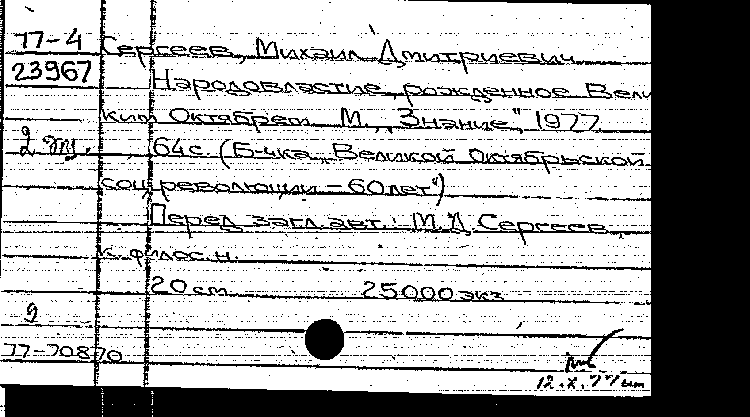 77-4 Сергеев, Михаил Дмитриевич
23967 Народовластие, рожденное Вели
ким Октябрем. М., „Знание", 1977.
2 эк. 64с. (Б-чка „Великой Октябрьской
соц. революции – 60 лет")
Перед загл. авт.: М.Д. Сергеев,
к. филос. н.
20 см 25000 экз
9
77-70870
12.X.77